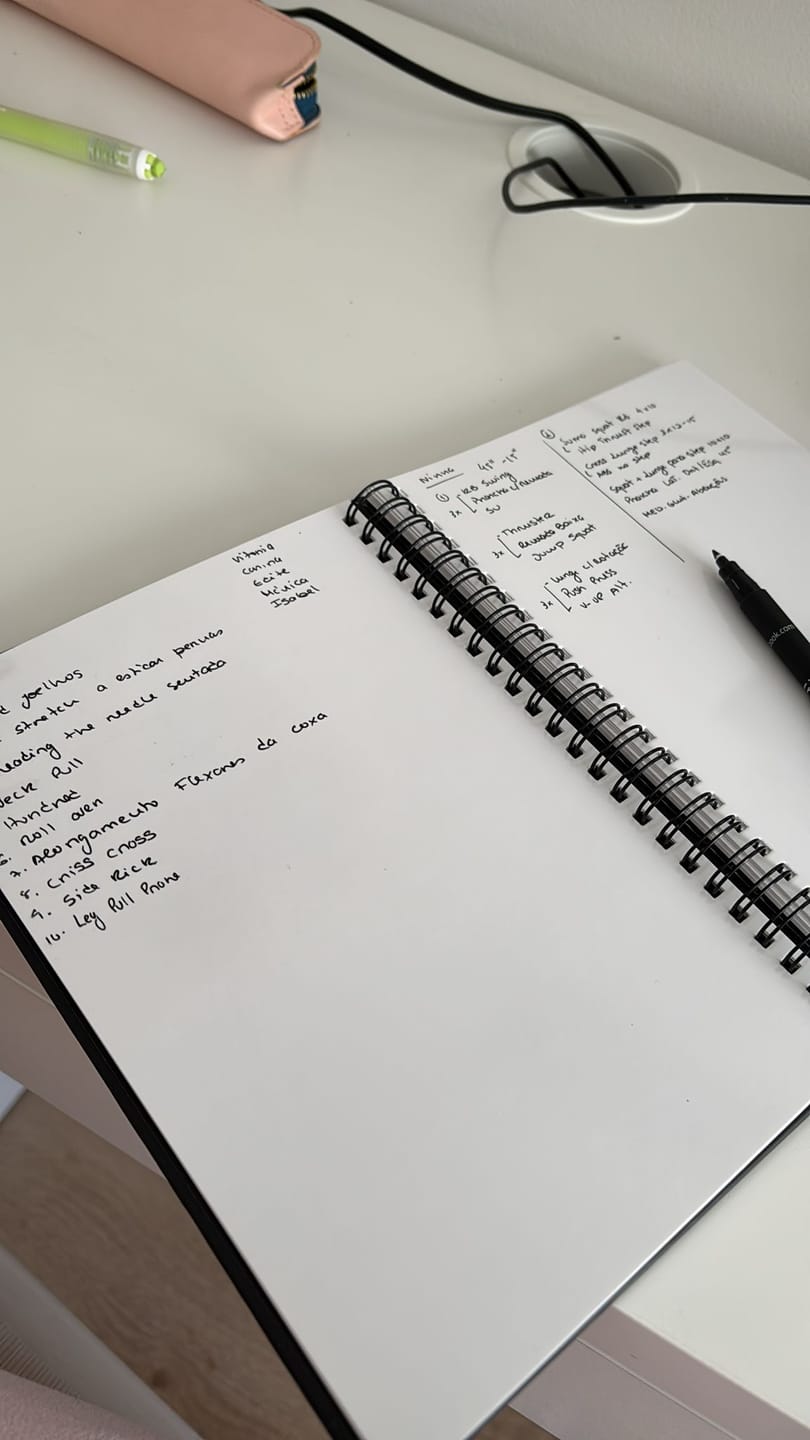 Vitoria
Carina
Edite
Mónica
Isabel
joelhos
stretch a esticar pernas
the needle sentada
Neck Pull
Hundred
6. Roll over
7. Alongamento Flexores da coxa
8. Criss Cross
9. Side Kick
10. Leg Pull Prone
45" - 15"
① KB Swing
3x Prancha c/ Remada
SU
Thruster
3x Remada Baixa
Jump Squat
Lunge c/ rotação
3x Push Press
V-UP Alt.
② Sumo Squat 4x10
Hip Thrust Step
Cross Lunge step 3x12-15
ABS no step
Squat + Lunge para step 10+10
Prancha Lat. Drt/Esq 45"
Abdução
ook.com